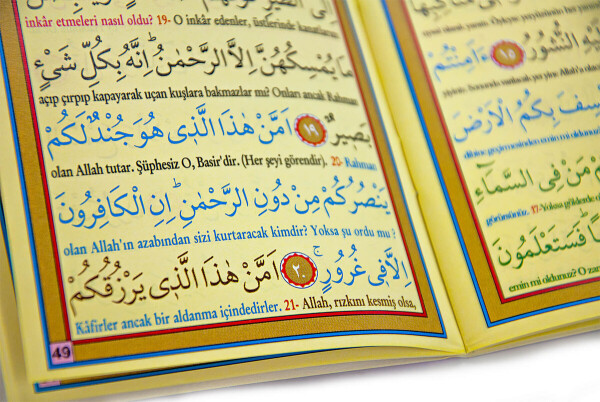 inkâr etmeleri nasıl oldu? 19- O inkâr edenler, üstlerinde kanatlarını
مَا يُمْسِكُهُنَّ اِلَّا الرَّحْمٰنُ اِنَّهُ بِكُلِّ شَيْءٍ
açıp çırpıp kapayarak uçan kuşlara bakmazlar mı? Onları ancak Rahman
بَصِيرٌ ١٩ اَمَّنْ هٰذَا الَّذِي هُوَ جُنْدٌ لَكُمْ
olan Allah tutar. Şüphesiz O, Basir'dir. (Her şeyi görendir). 20- Rahman
يَنْصُرُكُمْ مِنْ دُونِ الرَّحْمٰنِ اِنِ الْكَافِرُونَ
olan Allah'ın azabından sizi kurtaracak kimdir? Yoksa şu ordu mu?
اِلَّا فِي غُرُورٍ ٢٠ اَمَّنْ هٰذَا الَّذِي يَرْزُقُكُمْ
Kâfirler ancak bir aldanma içindedirler. 21- Allah, rızkını kesmiş olsa,
49
النُّشُورُ ١٥ ءَاَمِنْتُمْ
يَخْسِفَ بِكُمُ الْاَرْضَ
مَنْ فِي السَّمَاءِ
görürsünüz. 17- Yoksa göklerde
فَسَتَعْلَمُونَ
emin mi oldunuz? O